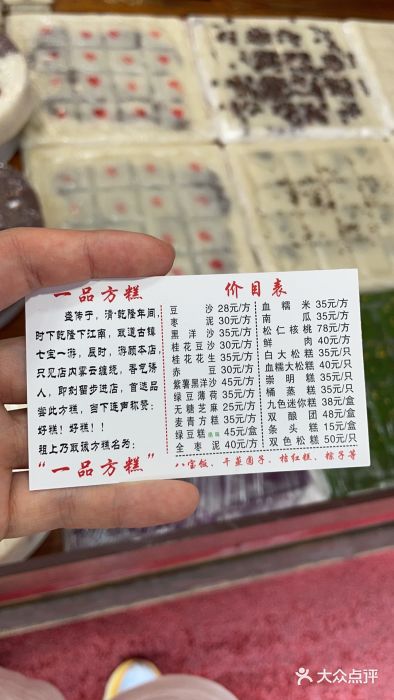 一品方糕
盛传于，清·乾隆年间，
时下乾隆下江南，取道古镇
七宝一游，辰时，游顾本店，
只见店内雾云缠绕，香气诱
人，即刻留步进店，首选品
尝此方糕，当下连声称赞：
好糕！好糕！！
祖上乃取该方糕名为：
“一品方糕”
价目表
豆沙 28元/方
枣泥 30元/方
黑洋沙 35元/方
桂花豆沙 30元/方
桂花花生 35元/方
赤豆 30元/方
紫薯黑洋沙 45元/方
绿豆薄荷 35元/方
无糖芝麻 25元/方
麦青方糕 35元/方
绿豆糕 45元/盒
全枣泥 40元/方
血糯米 35元/方
南瓜 35元/方
松仁核桃 78元/方
鲜肉 40元/方
白大松糕 35元/只
血糯大松糕 40元/只
崇明糕 35元/只
桶蒸糕 35元/只
九色迷你糕 38元/盒
双酿团 48元/盒
条头糕 15元/盒
双色松糕 50元/只
八宝饭、干菜团子、桔红糕、粽子等
大众点评